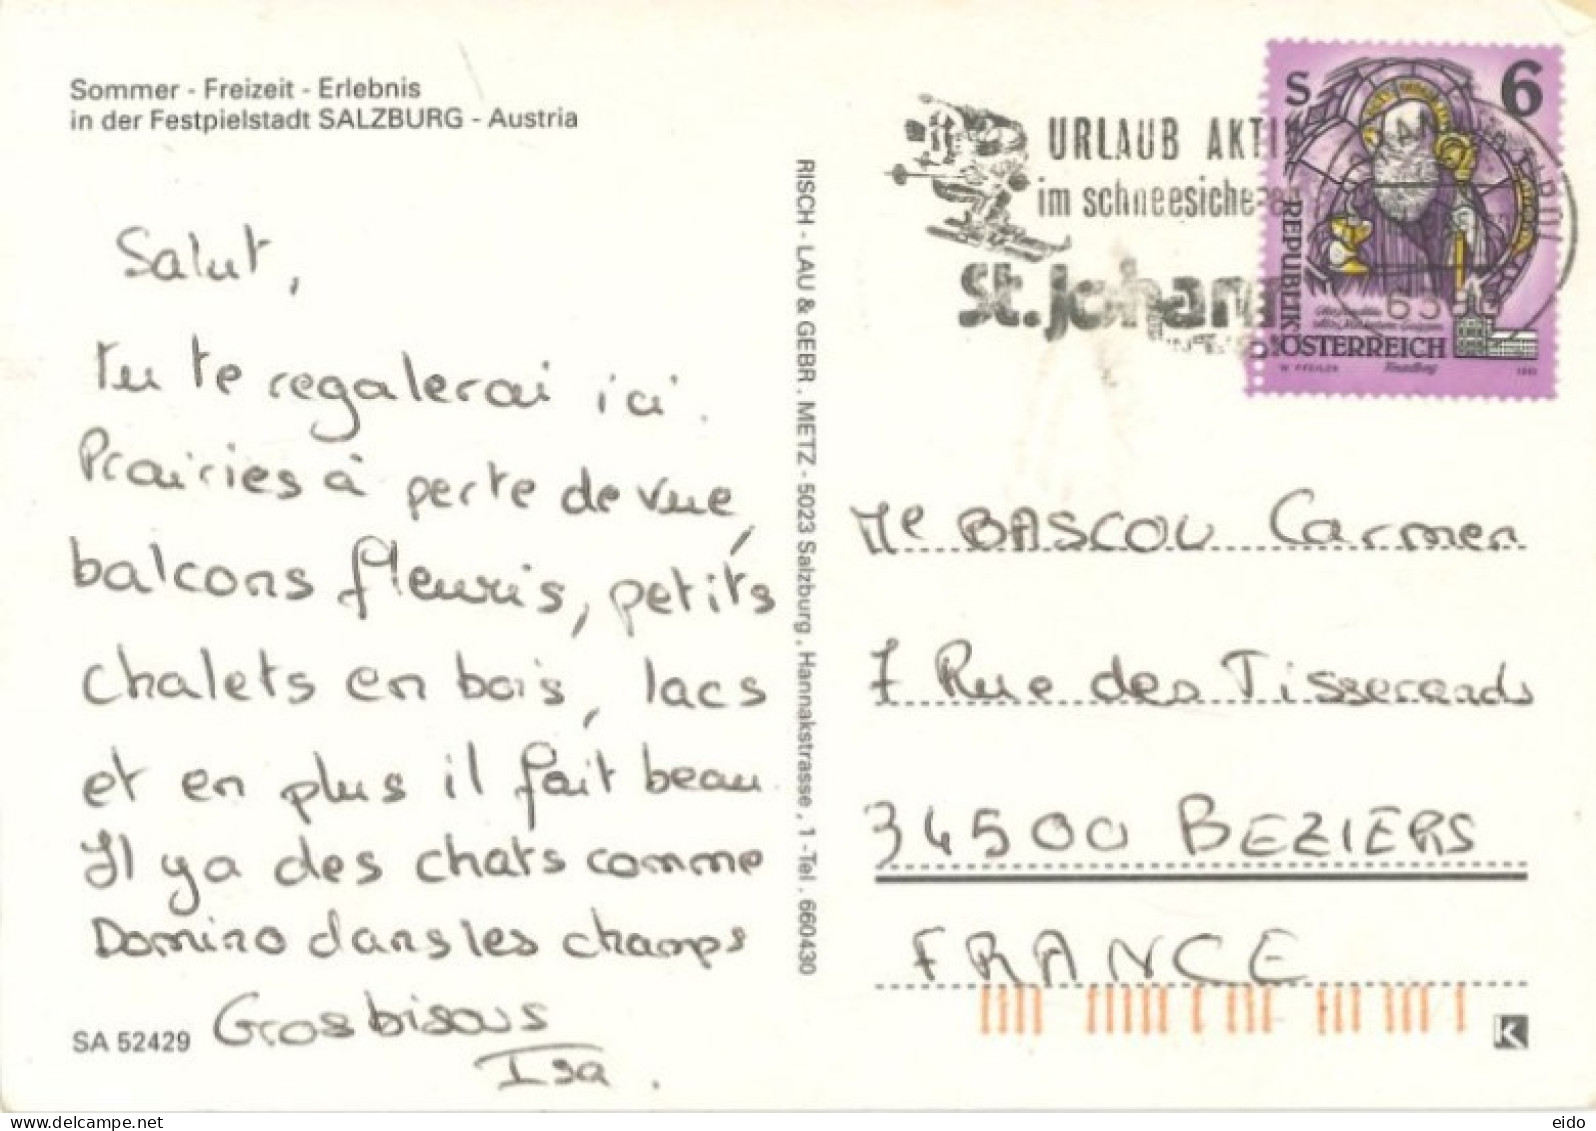 Sommer - Freizeit - Erlebnis
in der Festpielstadt SALZBURG - Austria
Salut,
tu te regalerai ici.
Prairies à perte de vue,
balcons fleuris, petits
chalets en bois, lacs
et en plus il fait beau.
Il ya des chats comme
Domino dans les champs
Gros bisous
Isa.
SA 52429
RISCH - LAU & GEBR. METZ - 5023 Salzburg, Hannakstrasse, 1 - Tel. 660430
URLAUB AKTIV
im schneesicheren
St. Johann
S 6
REPUBLIK
ÖSTERREICH
W. PFEILER
Me BASCOU Carmen
7 Rue des Tisserands
34500 BEZIERS
FRANCE
K
delcampe.net
eido